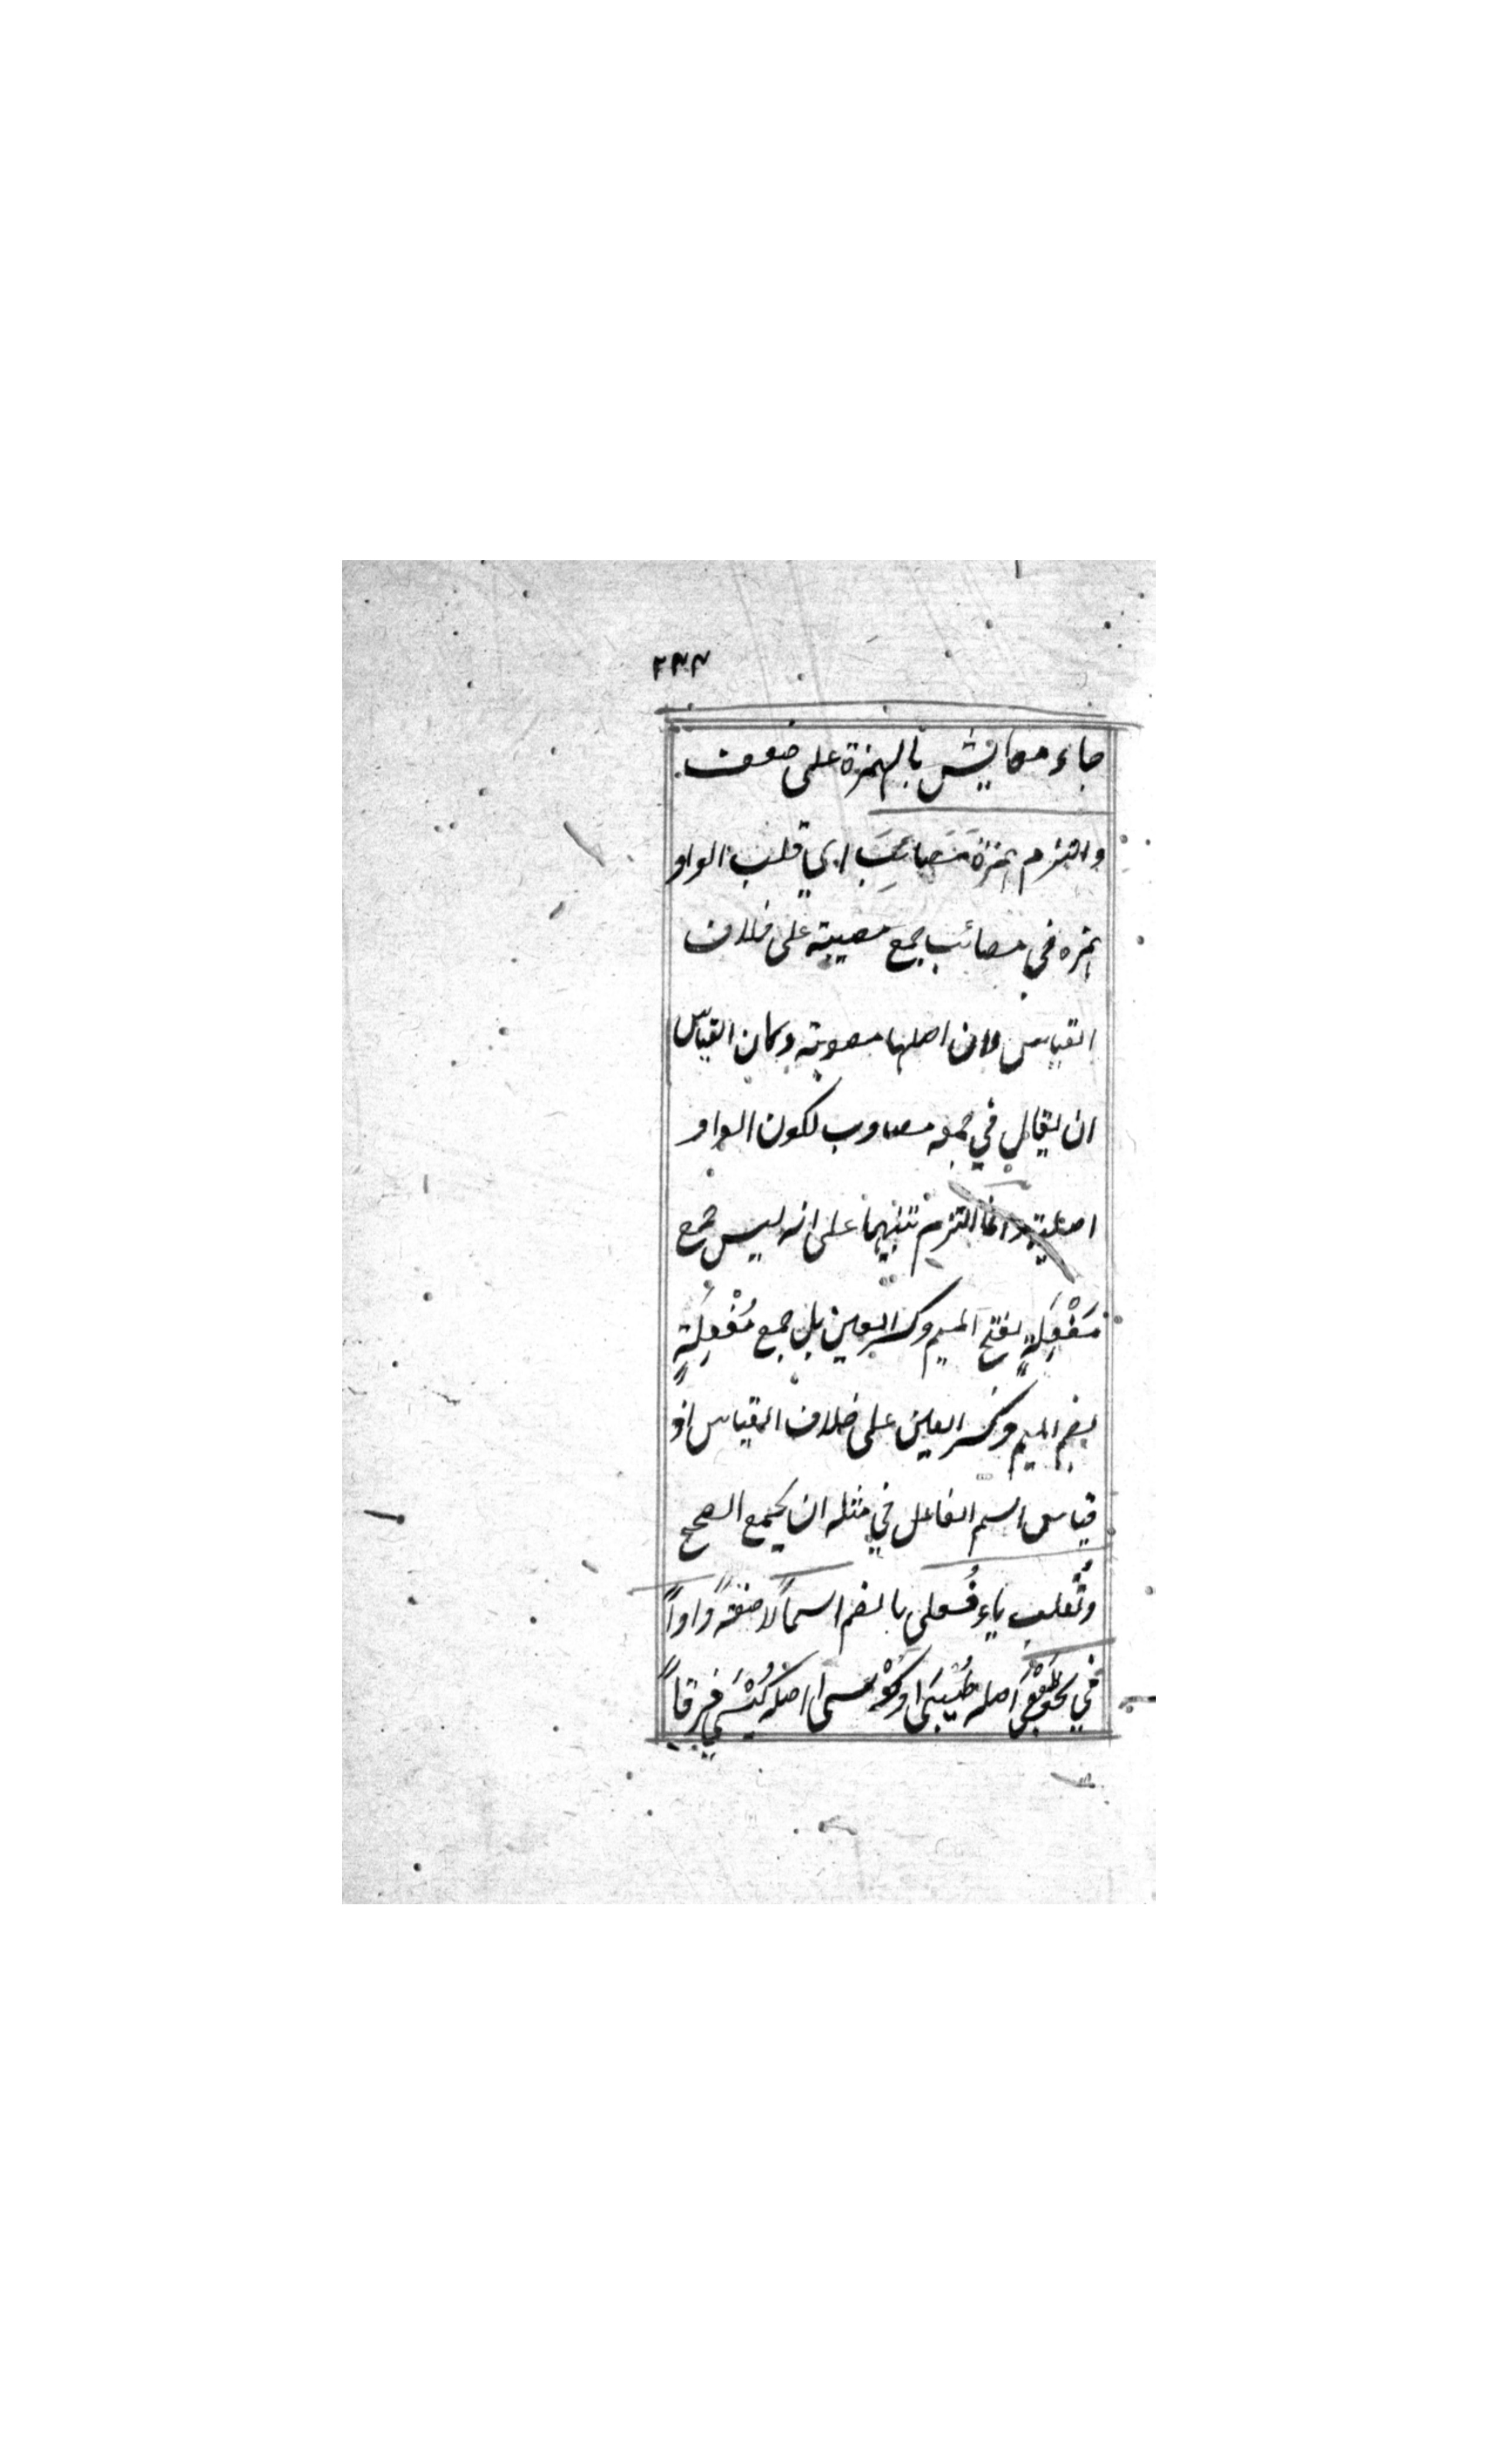 ٢٣٣
جاء معائش بالهمزة على ضعف
والتزم همزة مَصَائِبَ اى قلب الواو
همزه في مصائب جمع مصيبة على خلاف
القياس لان اصلها مصوبة وكان القياس
ان يقال في جمعه مصاوب لكون الواو
اصلية وانما التزم تنبيها على انه ليس جمع
مَفْعِلَةٍ بفتح الميم وكسر العين بل جمع مُفْعِلَةٍ
بضم الميم وكسر العين على خلاف القياس اذ
قياس اسم الفاعل في مثله ان يجمع الصحح
وتُقلب ياء فُعلى بالضم اسماً لا صفةً واواً
في نحو طُوْبى اصله طُيْبَى او كُوْسى اصله كُيْسَى فرقاً